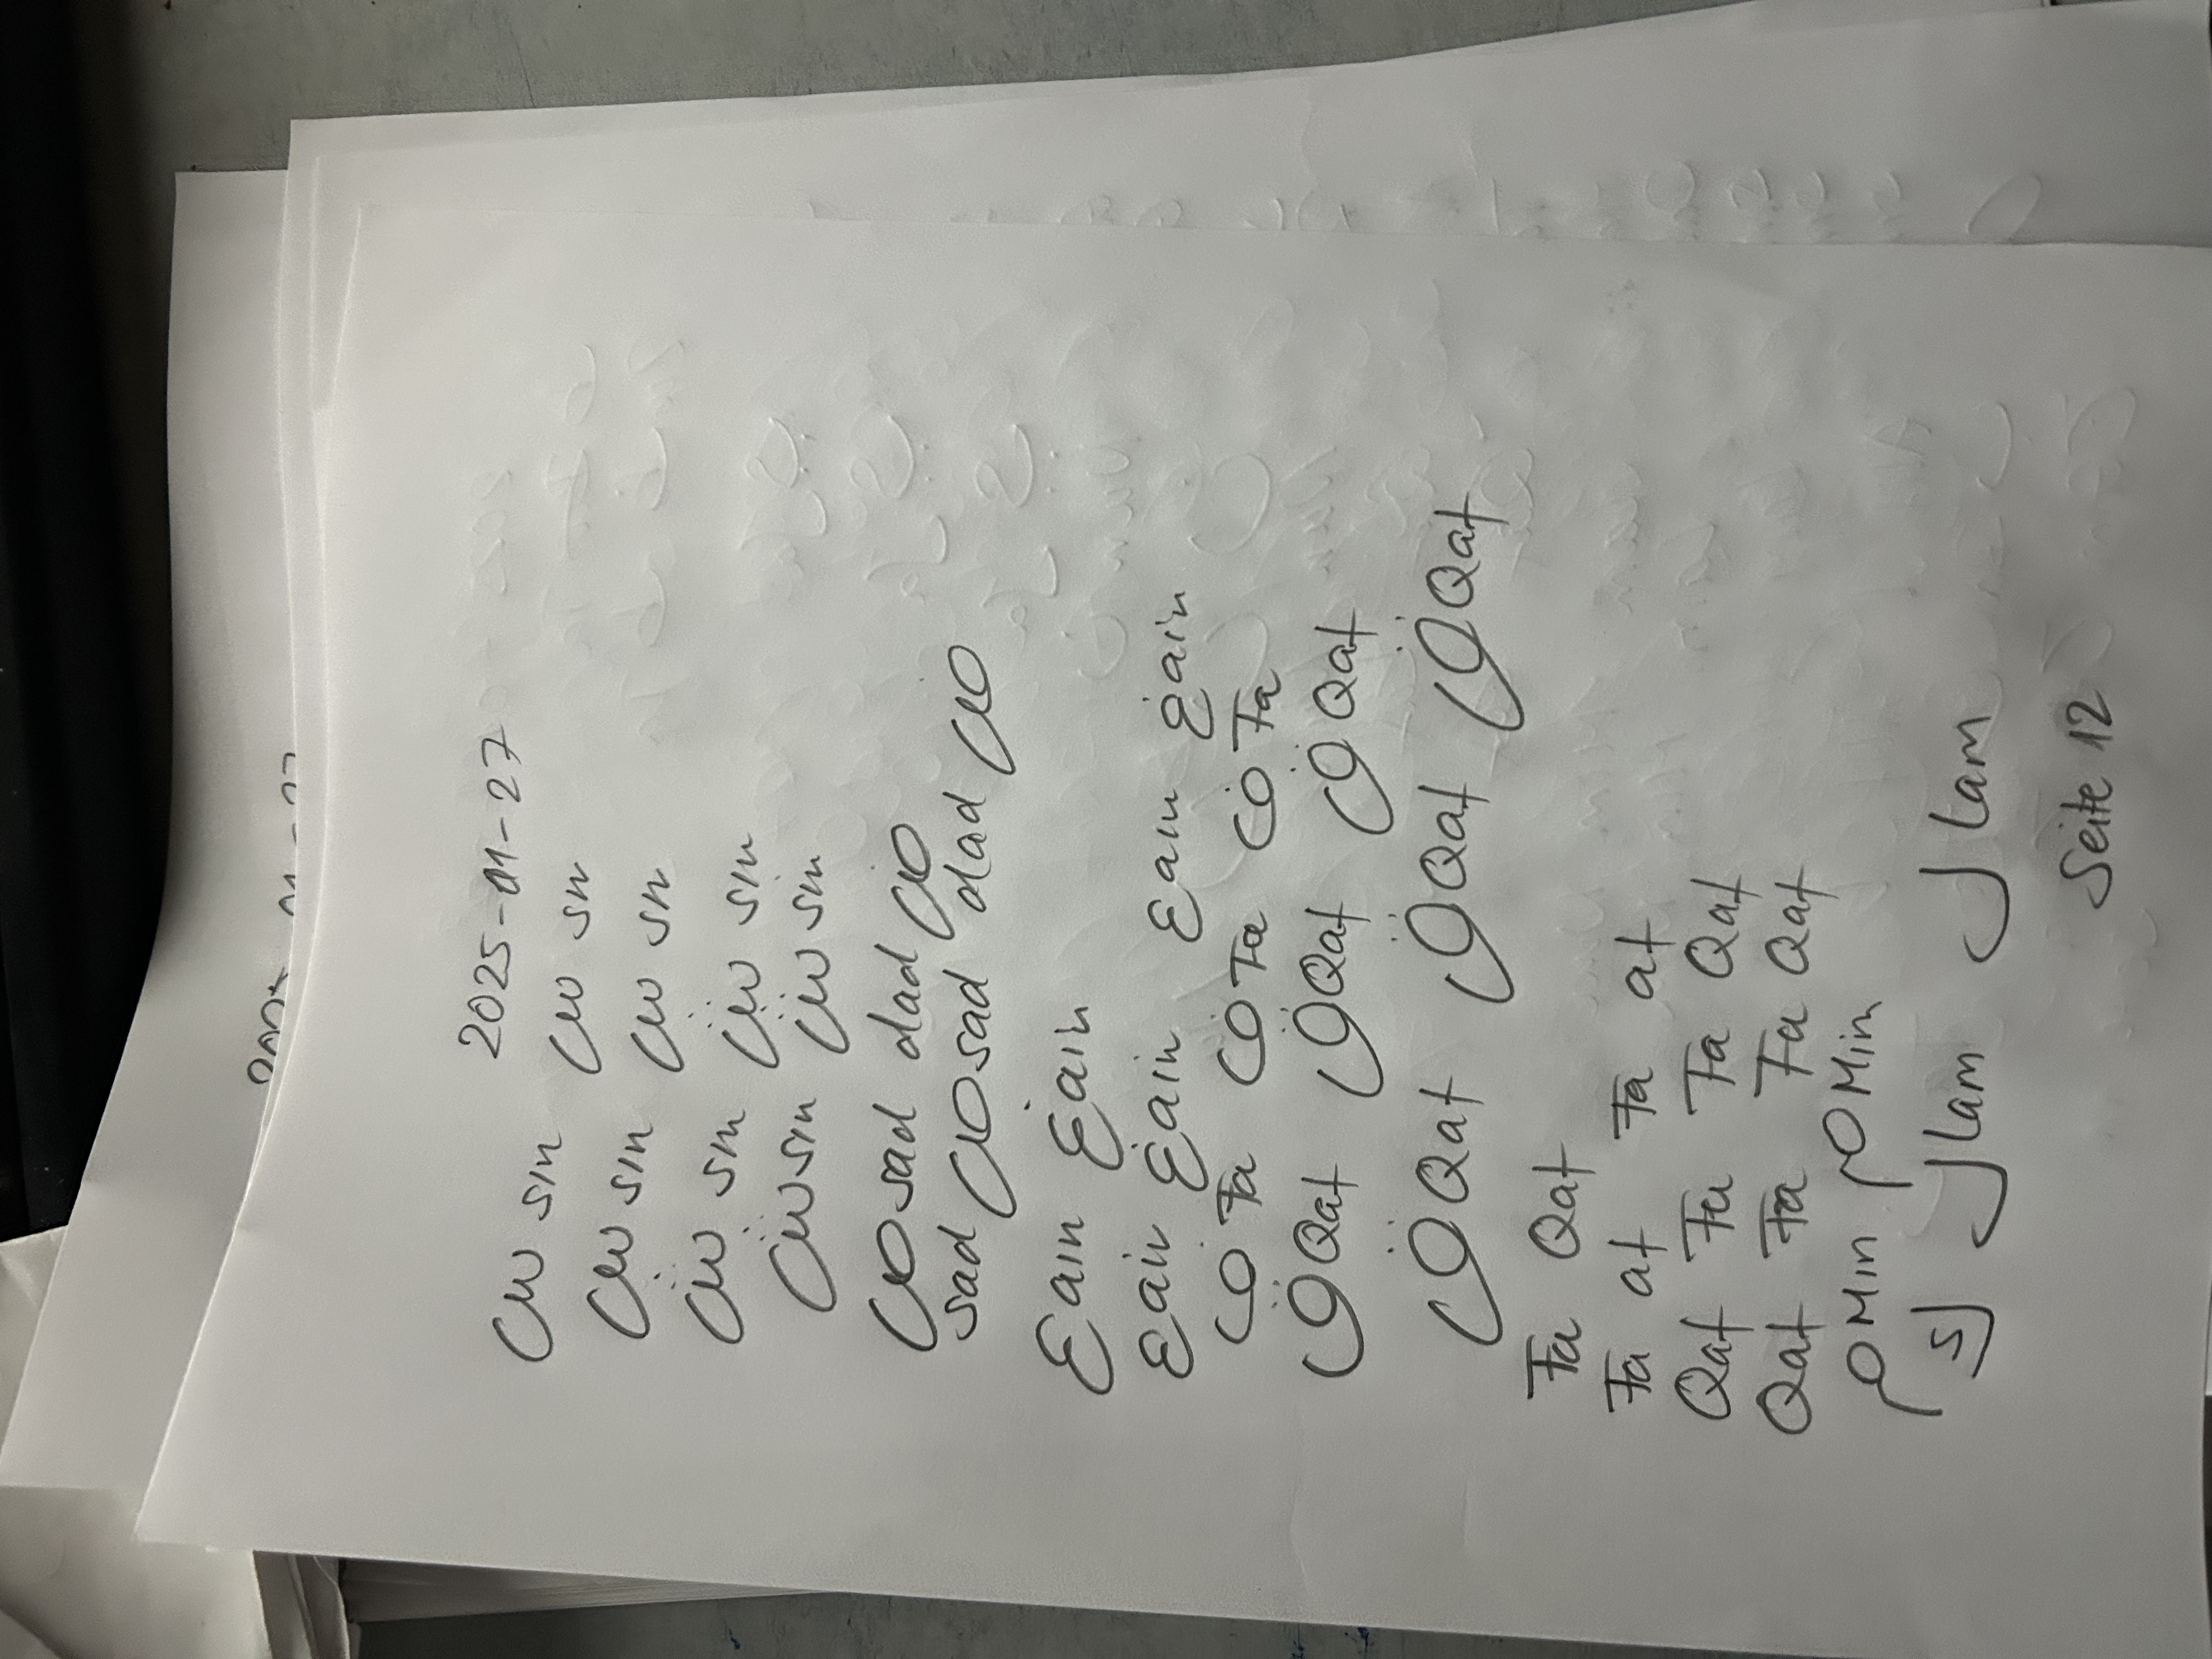 2025-01-27
س sin س sin
س sin س sin
ش sin ش sin
ش sin ش sin
ص sad dad ض
sad ص sad dad ض
ع ain غ ain
ع ain غ ain ع ain غ ain
ف Fa ف Fa ف Fa
ق Qaf ق Qaf ق Qaf
ق Qaf ق Qaf ق Qaf
Fa Qaf
Fa af Fa af
Qaf Fa Fa Qaf
Qaf Fa Fa Qaf
م Min م Mim
ك ل lam ل lam
Seite 12